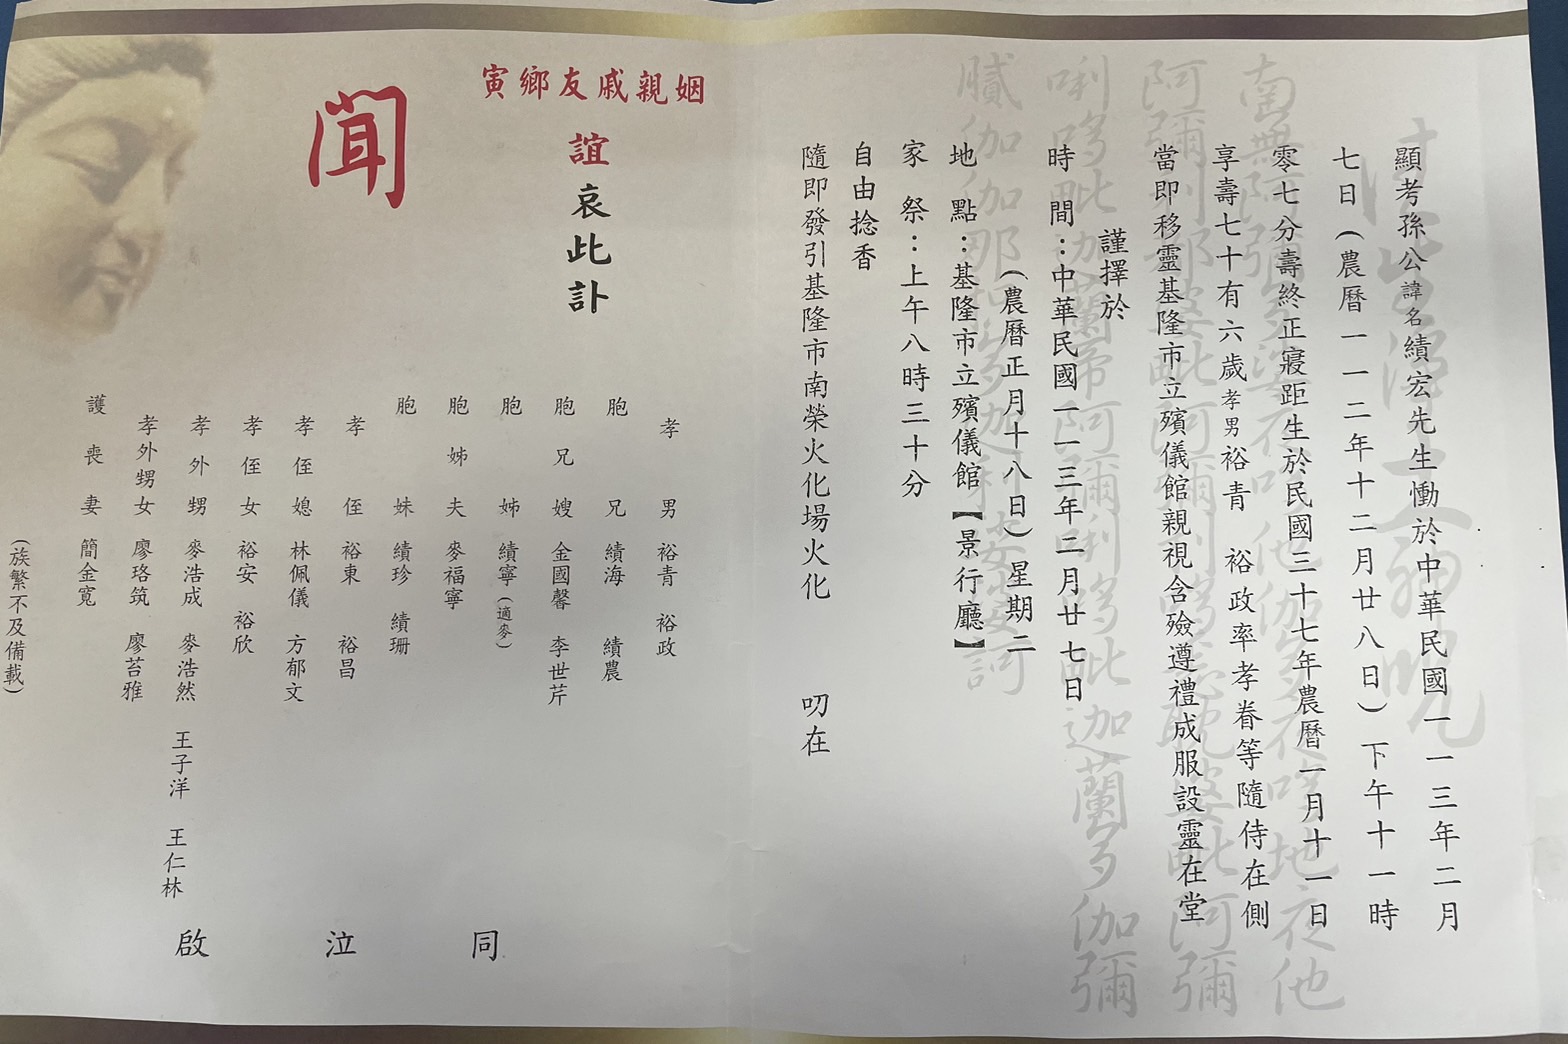 顯考孫公諱名績宏先生慟於中華民國一一三年二月
七日(農曆一一二年十二月廿八日)下午十一時
零七分壽終正寢距生於民國三十七年農曆一月十一日
享壽七十有六歲孝男裕青 裕政率孝眷等隨侍在側
當即移靈基隆市立殯儀館親視含殮遵禮成服設靈在堂
謹擇於
時間:中華民國一一三年二月廿七日
(農曆正月十八日)星期二
地點:基隆市立殯儀館【景行廳】
家祭:上午八時三十分
自由捻香
隨即發引基隆市南榮火化場火化 叨在
姻親戚友鄉寅
誼哀此訃
聞
孝男 裕青 裕政
胞兄 績海 績農
胞兄嫂 金國馨 李世芹
胞姊 績寧(適麥)
胞姊夫 麥福寧
胞妹 績珍 績珊
孝侄 裕東 裕昌
孝侄媳 林佩儀 方郁文
孝侄女 裕安 裕欣
孝外甥 麥浩成 麥浩然 王子洋 王仁林
孝外甥女 廖珞筑 廖苔雅
護喪妻 簡金寬
(族繁不及備載)
同泣啟